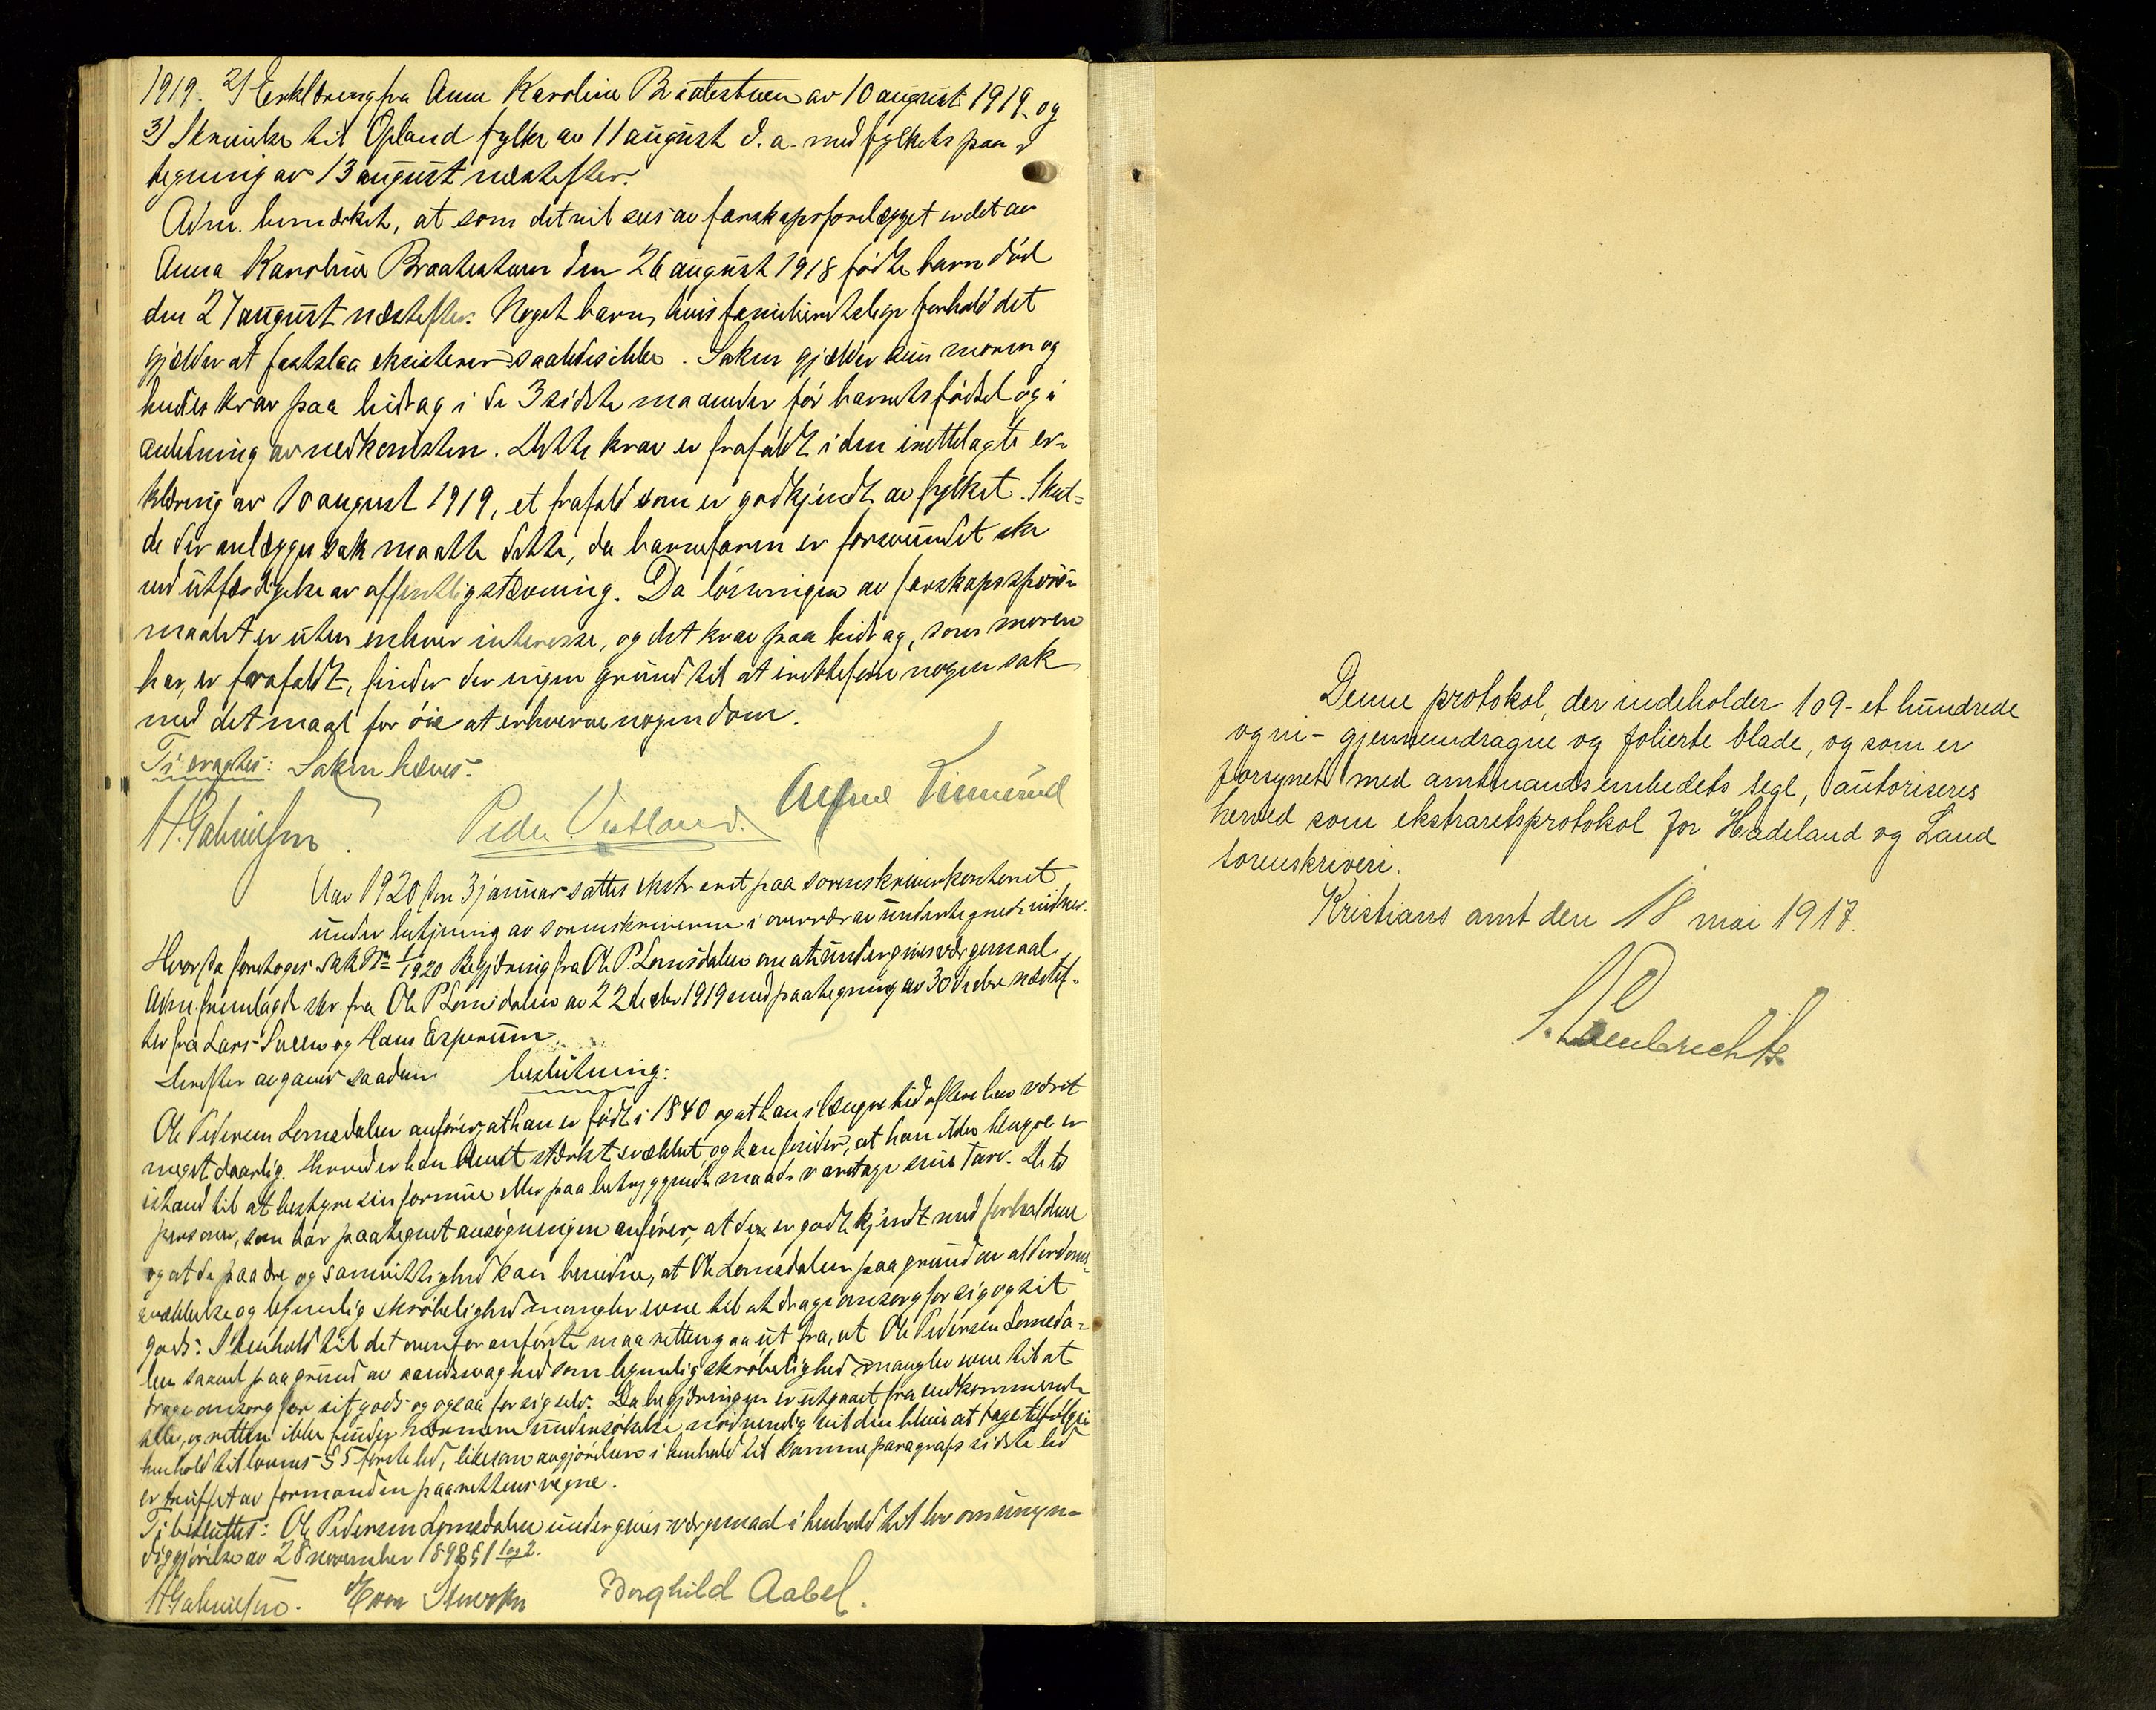 1919. 2) Erklæring fra Anna Karoline Braatestuen av 10 august 1919 og
3) Skrivelse til Opland fylke av 11 august d.a. med fylkets paa-
tegning av 13 august næstefter.
Adm. bemærket, at som det vil sees av farskapsforelægget er det av
Anna Karoline Braatestuen den 26 august 1918 fødte barn død
den 27 august næstefter. Noget barn, hvis familieretslige forhold det
gjælder at fastslaa eksisterer saaledes ikke. Saken gjælder kun moren og
hendes krav paa bidrag i de 3 sidste maaneder før barnets fødsel og i
anledning av nedkomsten. Dette krav er frafaldt i den irettelagte er-
klæring av 10 august 1919, et frafald som er godkjendt av fylket. Skul-
de der anlægges sak maatte dette, da barnefaren er forsvundet ske
ved utfærdigelse av offentlig stævning. Da løsningen av farskapsspørs-
maalet er uten enhver interesse, og det krav paa bidrag, som moren
har, er frafaldt, finder der ingen grund til at iretteføre nogen sak
med det maal for øie at erhverve nogen dom.
Ti eragtes: Saken hæves.
H. Gabrielsen. Peder Vestland. Alfred
Aar 1920 den 3 januar sattes ekstraret paa sorenskriverkontoret
under betjening av sorenskriveren i overvær av undertegnede vidner.
Hvorda foretoges sak No 1/1920 Begjæring fra Ole P. Lomsdalen om at undergives værgemaal
Adm. fremlagde skr. fra Ole P Lomsdalen av 22 decbr 1919 med paategning av 30 decbr næstef-
ter fra Lars Sveen og Hans Esperum.
Derefter avgaves saadan beslutning:
Ole Pedersen Lomsdalen anfører, at han er født i 1840 og at han i længre tid oftere har været
meget daarlig. Herved er han blevet stærkt svækket, og han finder, at han ikke længre er
istand til at bestyre sin formue eller paa betryggende maade varetage sine tarv. De to
personer, som har paategnet ansøgningen anfører, at de er godt kjendt med forholdene
og at de paa ære og samvittighed kan bevidne, at Ole Lomsdalen paa grund av alderdoms-
svækkelse og legemlig skrøbelighed mangler evne til at drage omsorg for sig og sit
gods. I henhold til det ovenfor anførte maa retten gaa ut fra, at Ole Pedersen Lomsda-
len saavel paa grund av sandssvaghed som legemlig skrøbelighed mangler evne til at
drage omsorg for sit gods og ogsaa for sig selv. Da begjæringen er utgaaet fra vedkommende
selv, og retten ikke finder nærmere undersøkelse nødvendig vil den bli at tage tilfølge i
henhold til lovens § 5 første led, likesom avgjørelsen i henhold til samme paragrafs sidste led
er truffet av formanden paa rettens vegne.
Ti besluttes: Ole Pedersen Lomsdalen undergives værgemaal i henhold til lov om umyn-
diggjørelse av 28 november 1898 § 1 1 og 2.
H. Gabrielsen. Borghild Aabel.
Denne protokol, der indeholder 109 - et hundrede
og ni - gjennemdragne og folierte blade, og som er
forsynet med amtmandsembedets segl, autoriseres
herved som ekstraretsprotokol for Hadeland og Land
sorenskriveri.
Kristians amt den 18 mai 1917.